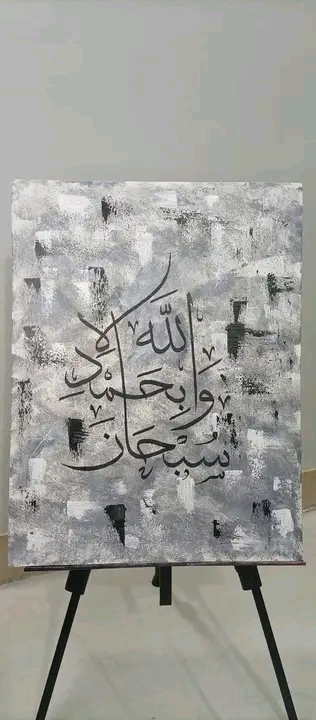 سُبْحَانَ
اللَّه
وَابِحَمْدِلاِ